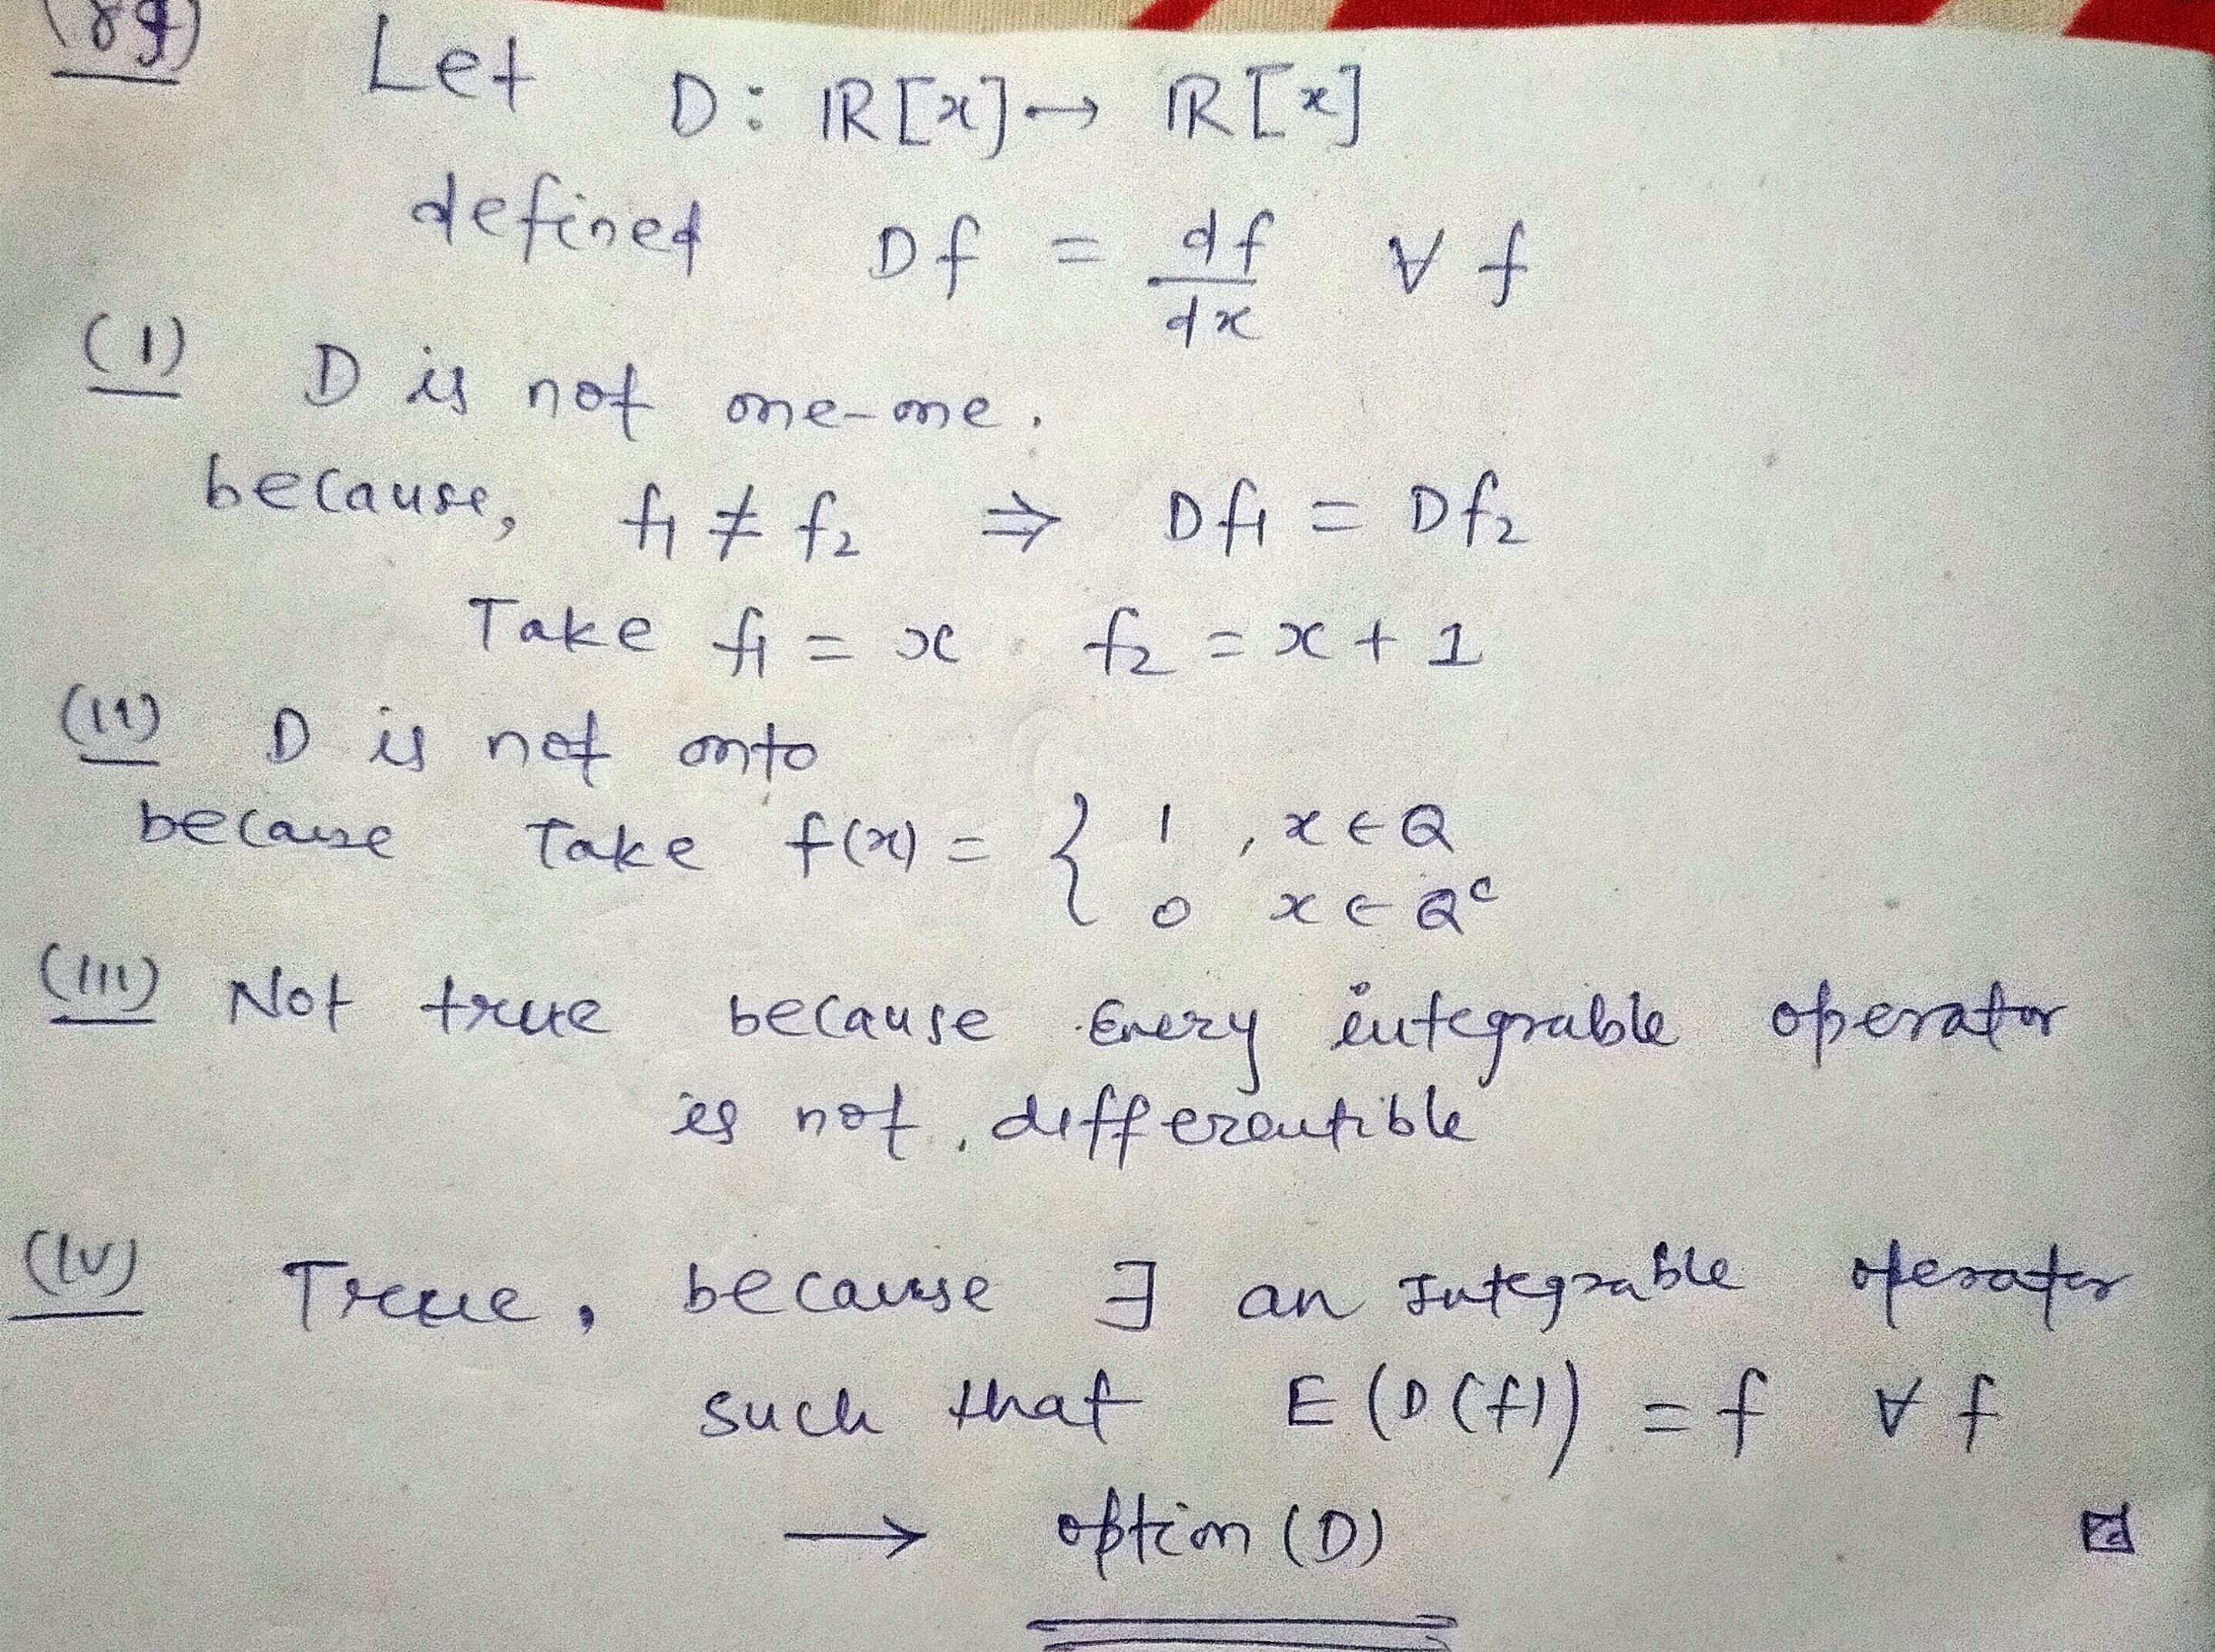 (89) Let D: ℝ[x] → ℝ[x]
defined Df = df/dx ∀ f
(I) D is not one-one.
because, f₁ ≠ f₂ ⇒ Df₁ = Df₂
Take f₁ = x f₂ = x + 1
(II) D is not onto
because Take f(x) = { 1 , x ∈ Q
0 x ∈ Qᶜ
(III) Not true because Every integrable operator
is not differentible
(IV) True, because ∃ an Integrable operator
such that E(D(f)) = f ∀ f
→ option (D)